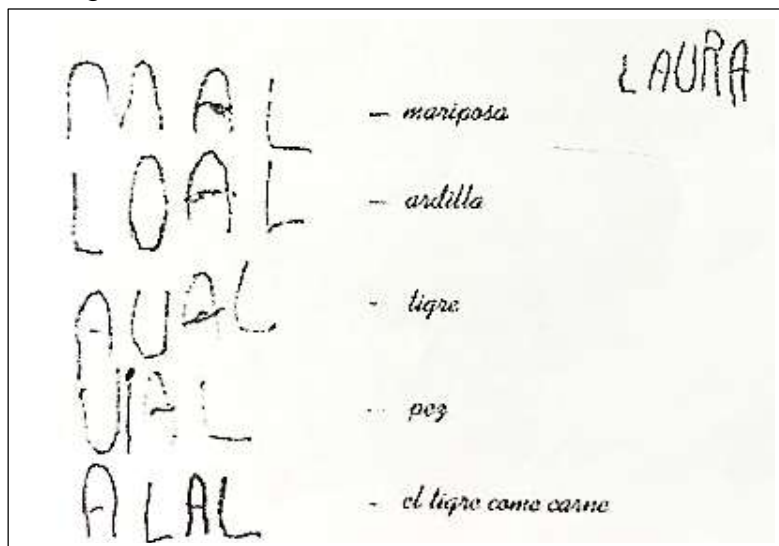 LAURA
MAL - mariposa
LOAL - ardilla
AUAL - tigre
UIAL - pez
ALAL - el tigre come carne